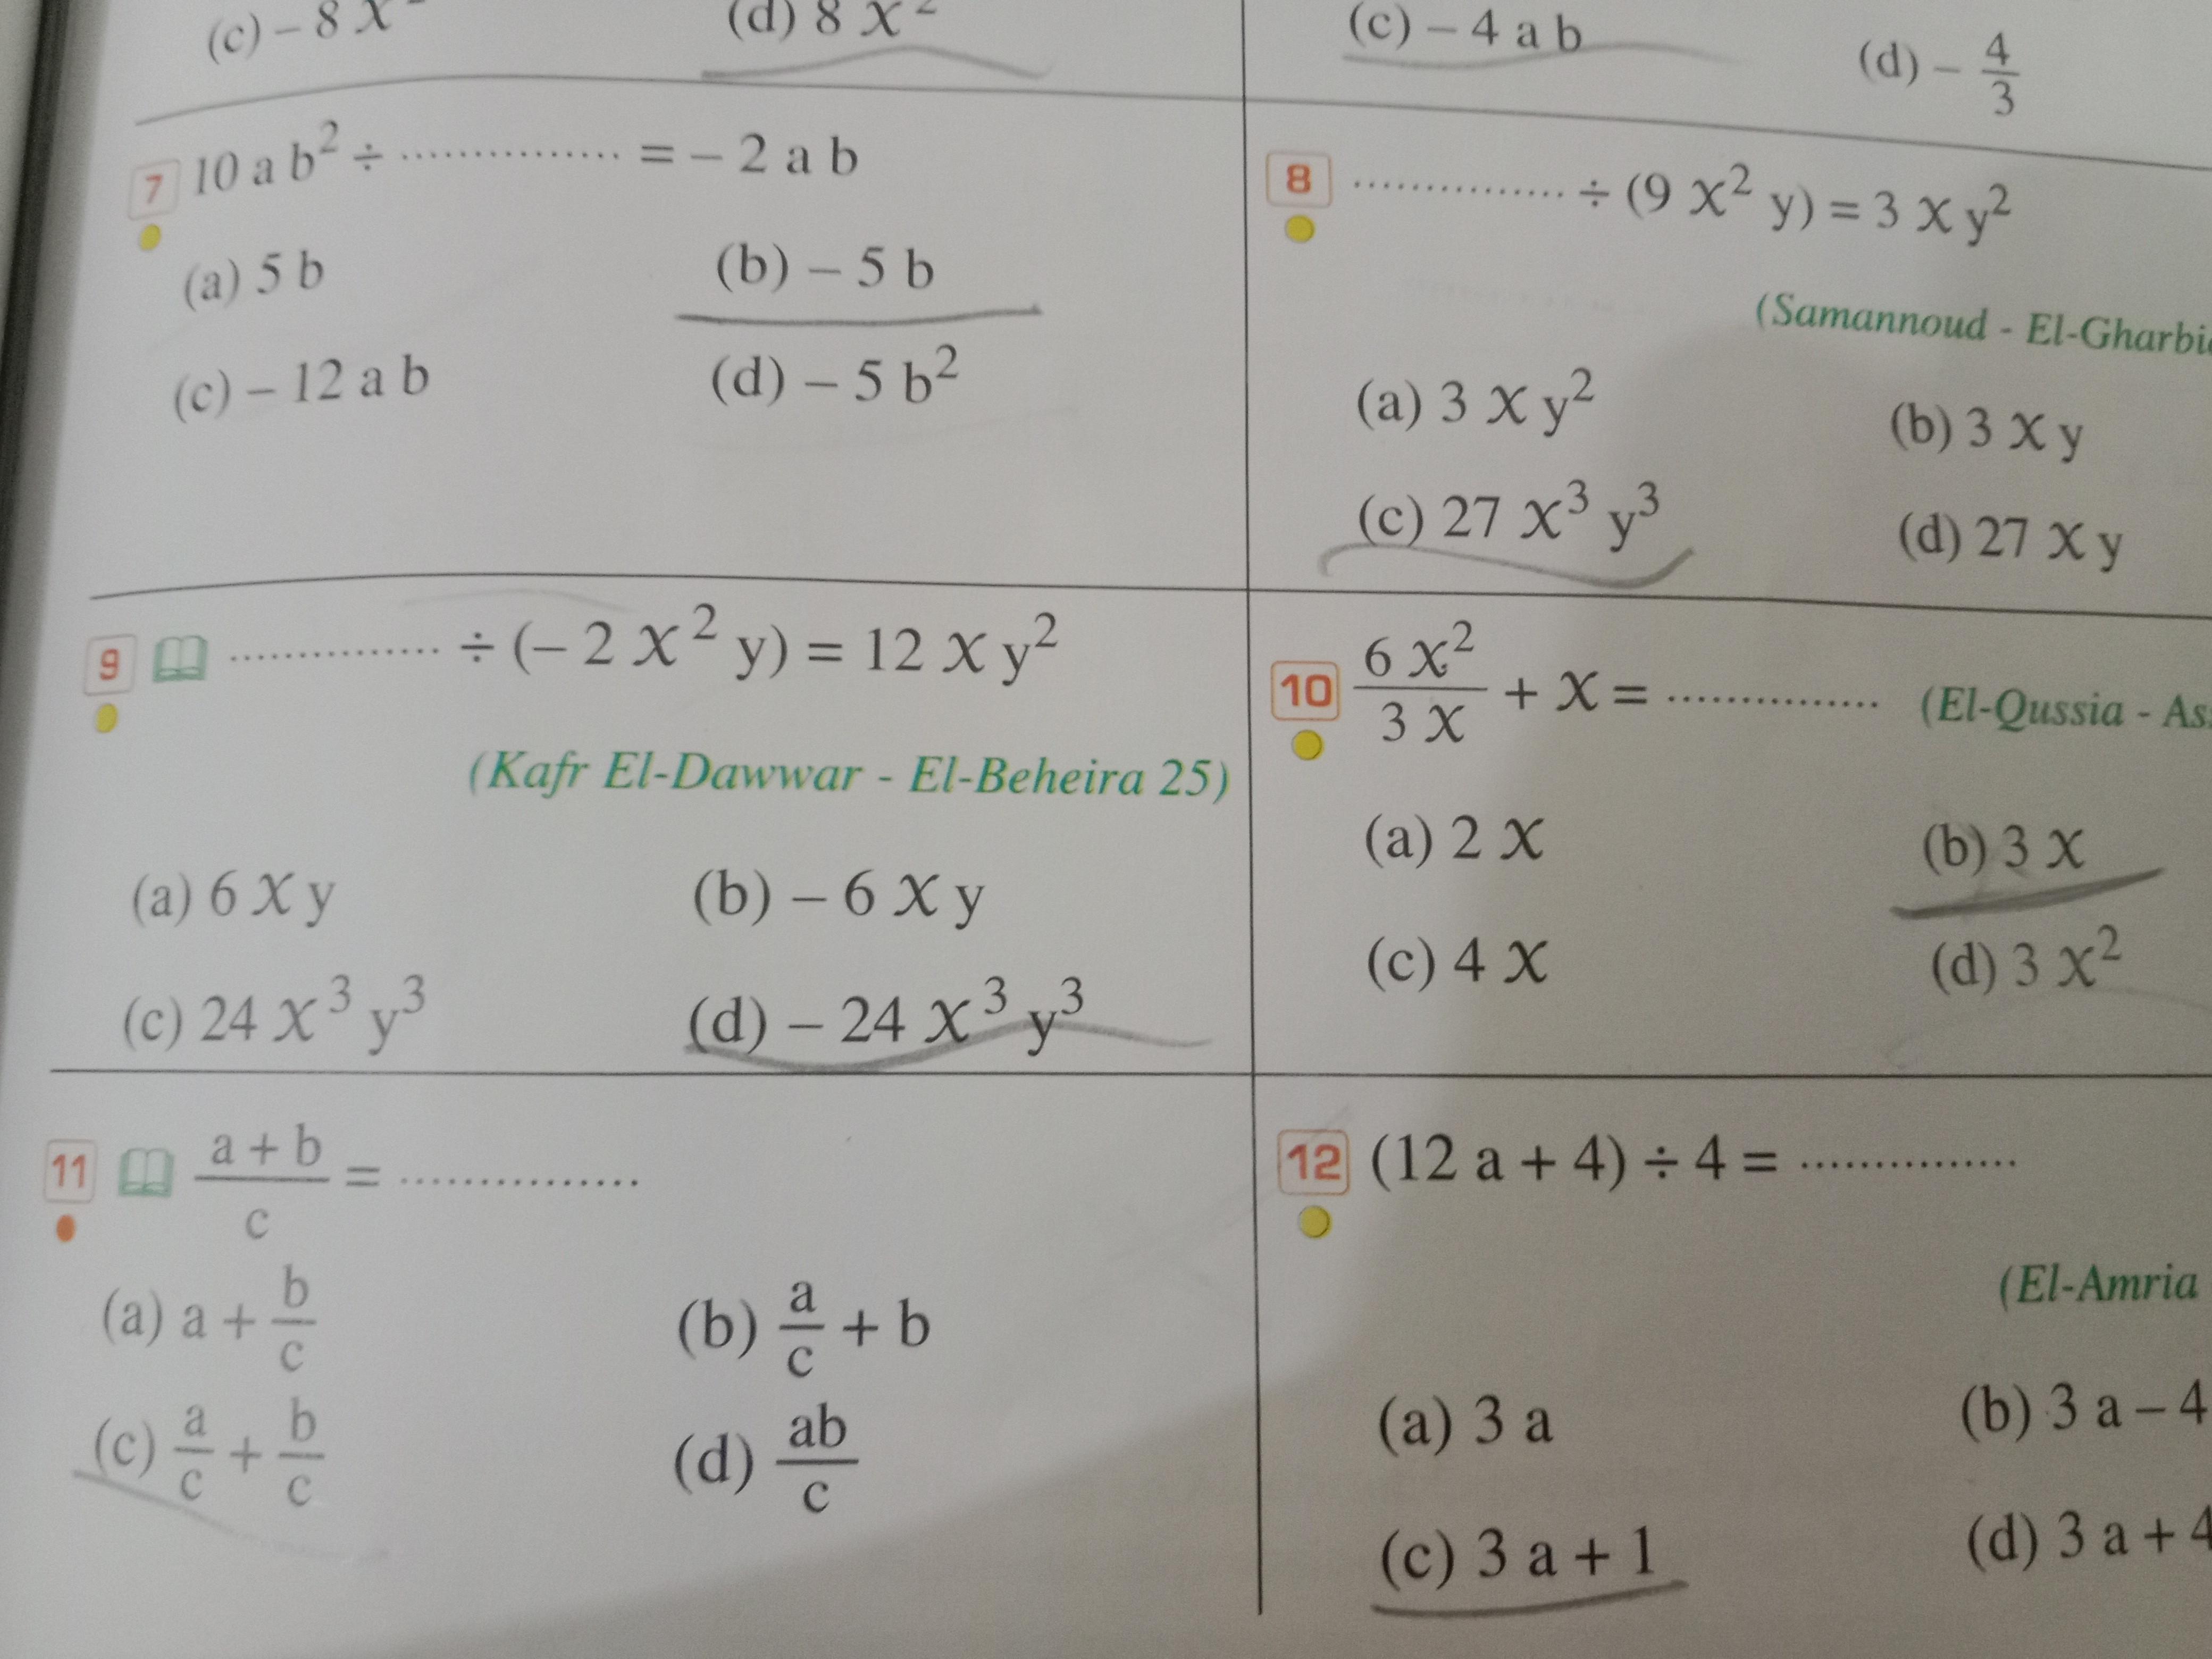 (c) – 8 x² (d) 8 x²
(c) – 4 a b (d) – 4/3
7 10 a b² ÷ ............... = – 2 a b
(a) 5 b (b) – 5 b
(c) – 12 a b (d) – 5 b²
8 ............... ÷ (9 x² y) = 3 x y²
(Samannoud - El-Gharbi
(a) 3 x y² (b) 3 x y
(c) 27 x³ y³ (d) 27 x y
9 ............... ÷ (– 2 x² y) = 12 x y²
(Kafr El-Dawwar - El-Beheira 25)
(a) 6 x y (b) – 6 x y
(c) 24 x³ y³ (d) – 24 x³ y³
10 6 x²/3 x + x = ............... (El-Qussia - As
(a) 2 x (b) 3 x
(c) 4 x (d) 3 x²
11 a + b/c = ...............
(a) a + b/c (b) a/c + b
(c) a/c + b/c (d) ab/c
12 (12 a + 4) ÷ 4 = ...............
(El-Amria
(a) 3 a (b) 3 a – 4
(c) 3 a + 1 (d) 3 a + 4